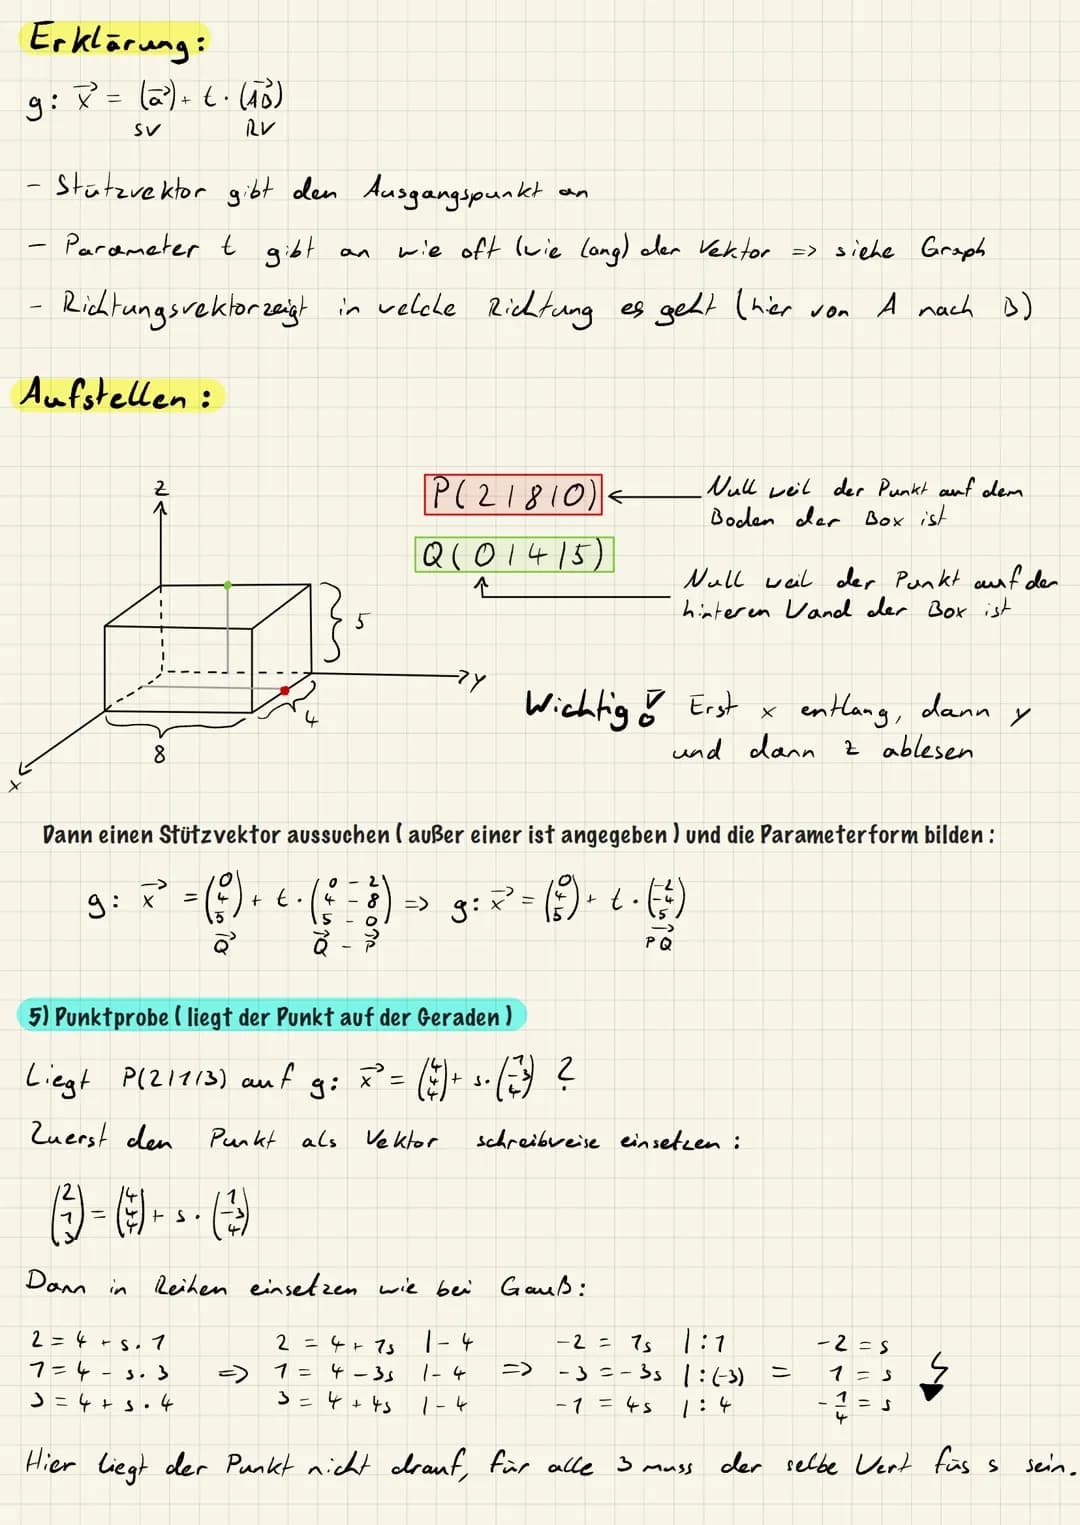 Erklärung:
g: x⃗ = (a⃗) + t · (AB⃗)
SV RV
- Stützvektor gibt den Ausgangspunkt an
- Parameter t gibt an wie oft (wie lang) der Vektor => siehe Graph
- Richtungsvektor zeigt in welche Richtung es geht (hier von A nach B)
Aufstellen:
z
5
y
4
8
x
P(2|8|0)
Null weil der Punkt auf dem
Boden der Box ist
Q(0|4|5)
Null weil der Punkt auf der
hinteren Wand der Box ist
Wichtig! Erst x entlang, dann y
und dann z ablesen
Dann einen Stützvektor aussuchen ( außer einer ist angegeben ) und die Parameterform bilden :
g: x⃗ = (0 4 5) + t · (0 - 2 4 - 8 5 - 0) => g: x⃗ = (0 4 5) + t · (-2 -4 5)
Q⃗ Q⃗ - P⃗ PQ⃗
5) Punktprobe ( liegt der Punkt auf der Geraden )
Liegt P(2|1|3) auf g: x⃗ = (4 4 4) + s · (1 -3 4) ?
Zuerst den Punkt als Vektor schreibweise einsetzen :
(2 1 3) = (4 4 4) + s · (1 -3 4)
Dann in Reihen einsetzen wie bei Gauß:
2 = 4 + s · 1 2 = 4 + 1s |- 4 -2 = 1s |:1 -2 = s
1 = 4 - s · 3 => 1 = 4 - 3s |- 4 => -3 = -3s |:(-3) = 1 = s
3 = 4 + s · 4 3 = 4 + 4s |- 4 -1 = 4s |: 4 -1/4 = s
Hier liegt der Punkt nicht drauf, für alle 3 muss der selbe Wert füs s sein.